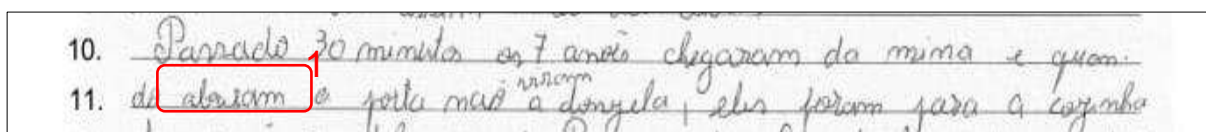 10. Passado 30 minutos os 7 anões chegaram da mima e quan-
1
11. do abriram a porta mas viram a donzela, eles foram para a cozinha